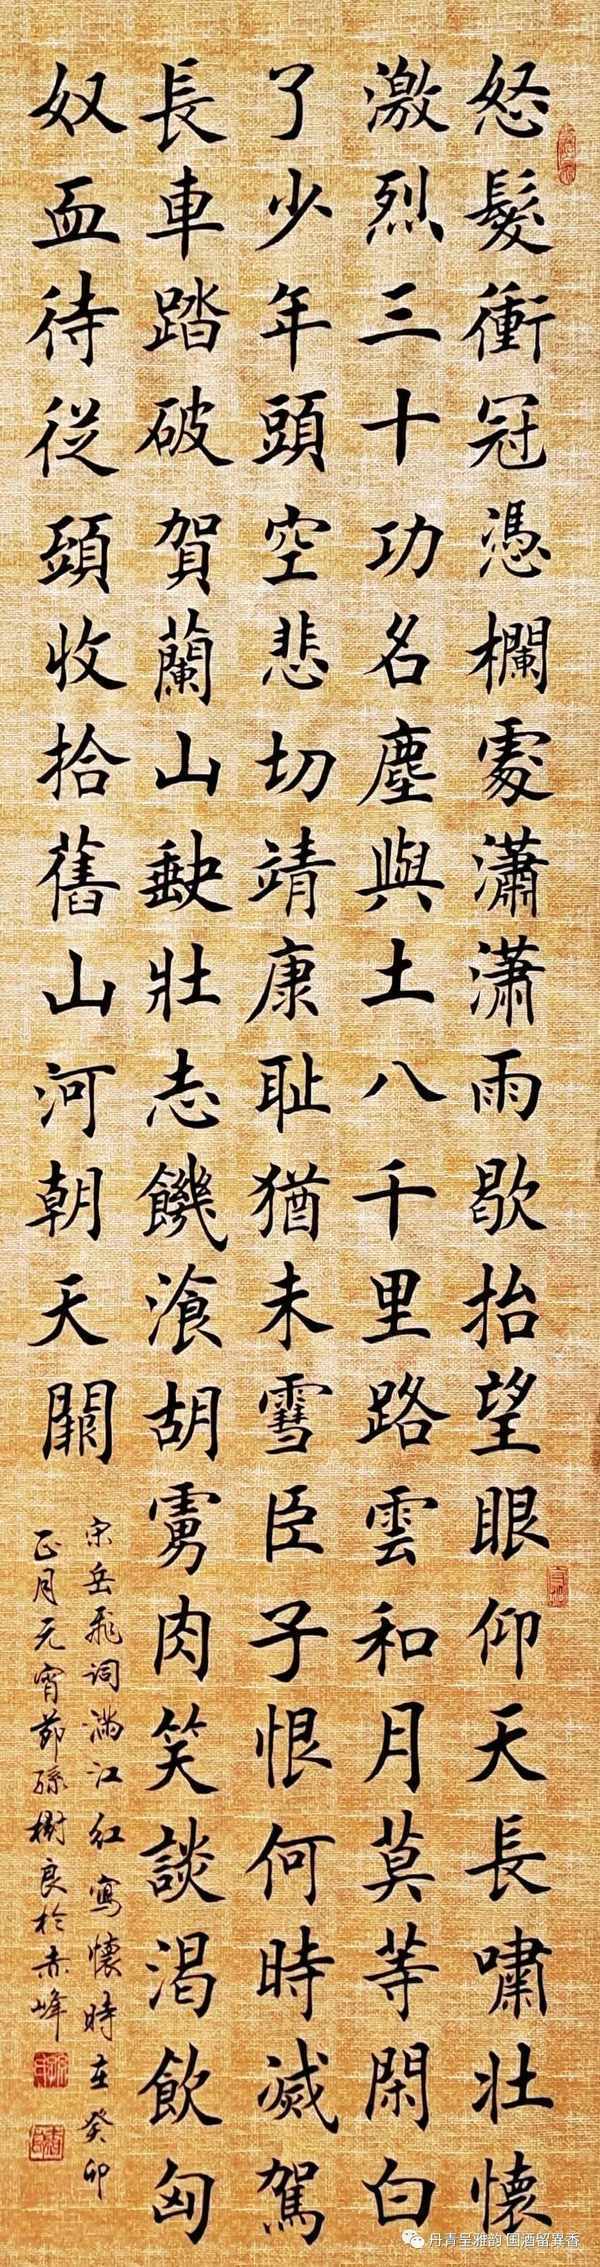 怒髮衝冠憑欄處瀟潇雨歇抬望眼仰天長嘯壯懷
激烈三十功名塵與土八千里路雲和月莫等閑白
了少年頭空悲切靖康耻猶未雪臣子恨何時滅駕
長車踏破賀蘭山缺壯志饑飡胡虜肉笑談渴飲匈
奴血待從頭收拾舊山河朝天闕
宋岳飛詞滿江紅寫懷時在癸卯
正月元宵節孫樹良於赤峰
丹青呈雅韵 国酒留異香